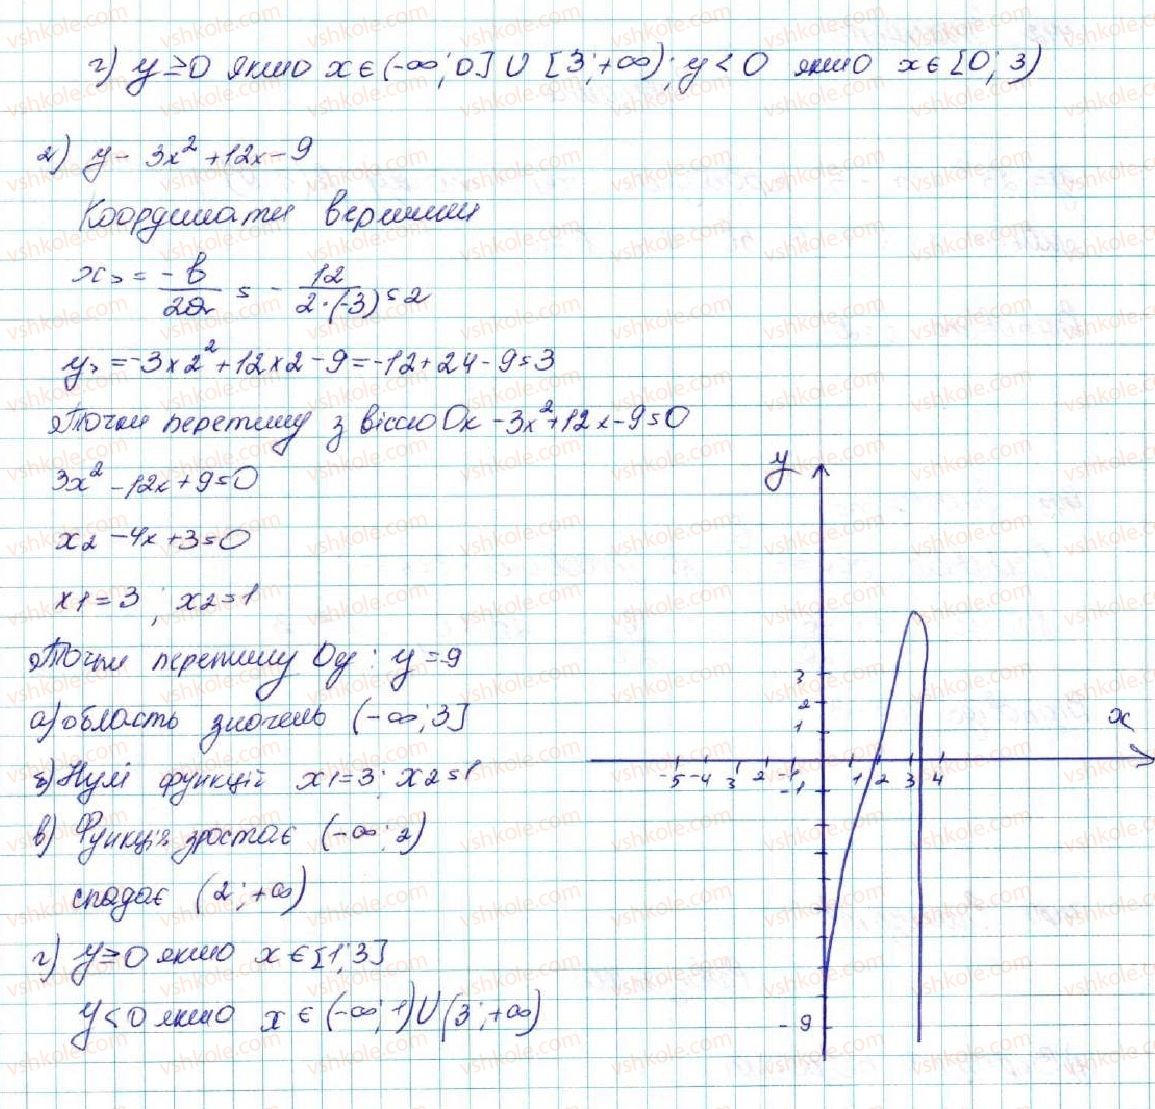 г) y ≥ 0 якшо x ∈ (-∞; 0] ∪ [3; +∞); y < 0 якшо x ∈ [0; 3)
2) y - 3x² + 12x - 9
Координати вершини
x₀ = -b/2a = - 12/2·(-3) = 2
y₀ = -3×2² + 12×2 - 9 = -12 + 24 - 9 = 3
Точки перетину з віссю Ox - 3x² + 12x - 9 = 0
3x² - 12x + 9 = 0
x2 - 4x + 3 = 0
x1 = 3; x2 = 1
Точки перетину Oy: y = -9
а) область значень (-∞; 3]
б) Нулі функції x1 = 3; x2 = 1
в) Функція зростає (-∞; 2)
спадає (2; +∞)
г) y ≥ 0 якшо x ∈ [1; 3]
y < 0 якшо x ∈ (-∞; 1) ∪ (3; +∞)
y
3
2
1
x
-5 -4 3 2 -1 1 2 3 4
-1
-9
vshkole.com